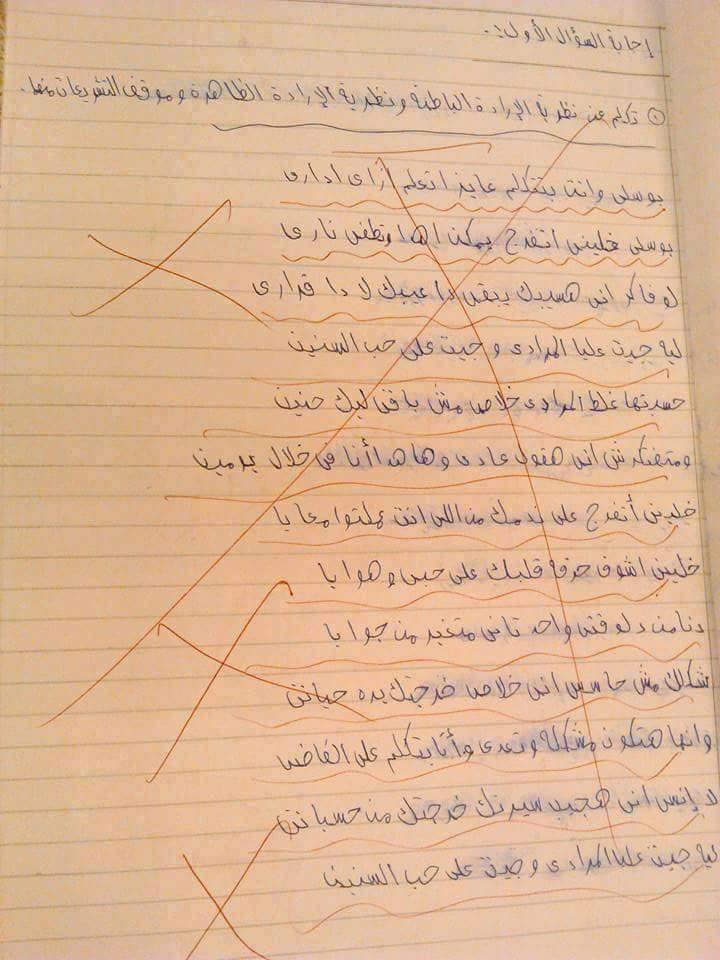 إجابة السؤال الأول:.
① تكلم عن نظرية الإرادة الباطنة ونظرية الإرادة الظاهرة وموقف التشريعات منها.
بوسلى وانت بتتكلم عايز اتعلم ازاى ادارى
بوسلى خلينى اتفرج يمكن اهدا وتطفى نارى
لو فاكر انى هسيبك يبقى دا عيبك لا دا قرارى
ليه جيت عليا المرادى وجيت على حب السنين
حسبتها غلط المرادى خلاص مش باقى ليك حنين
ومتفتكرش انى هقول عادى وهاهدا أنا فى خلال يومين
خلينى أتفرج على ندمك من اللى انت عملتوا معايا
خلينى اشوف حرقة قلبك على حبى وهوايا
دنا من دلوقتى واحد تانى متغير من جوايا
شكلك مش حاسس انى خلاص خرجتك بره حياتى
وانها هتكون مشكلة وتعدى وأنا بتكلم على الفاضى
لا إنسى انى هجيب سيرتك خرجتك من حسباتى
ليه جيت عليا المرادى وجيت على حب السنين